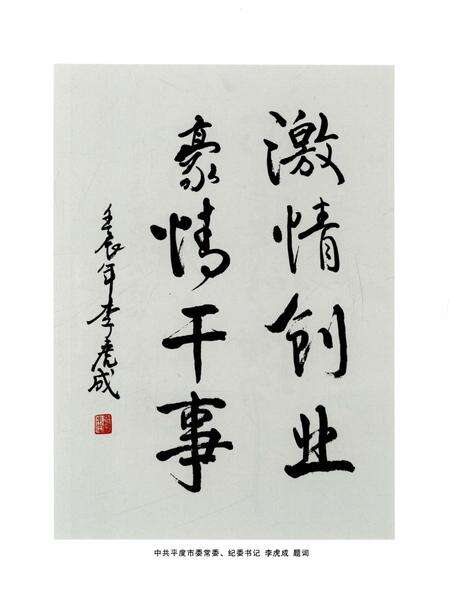 激情创业
豪情干事
壬辰年李虎成
中共平度市委常委、纪委书记 李虎成 题词